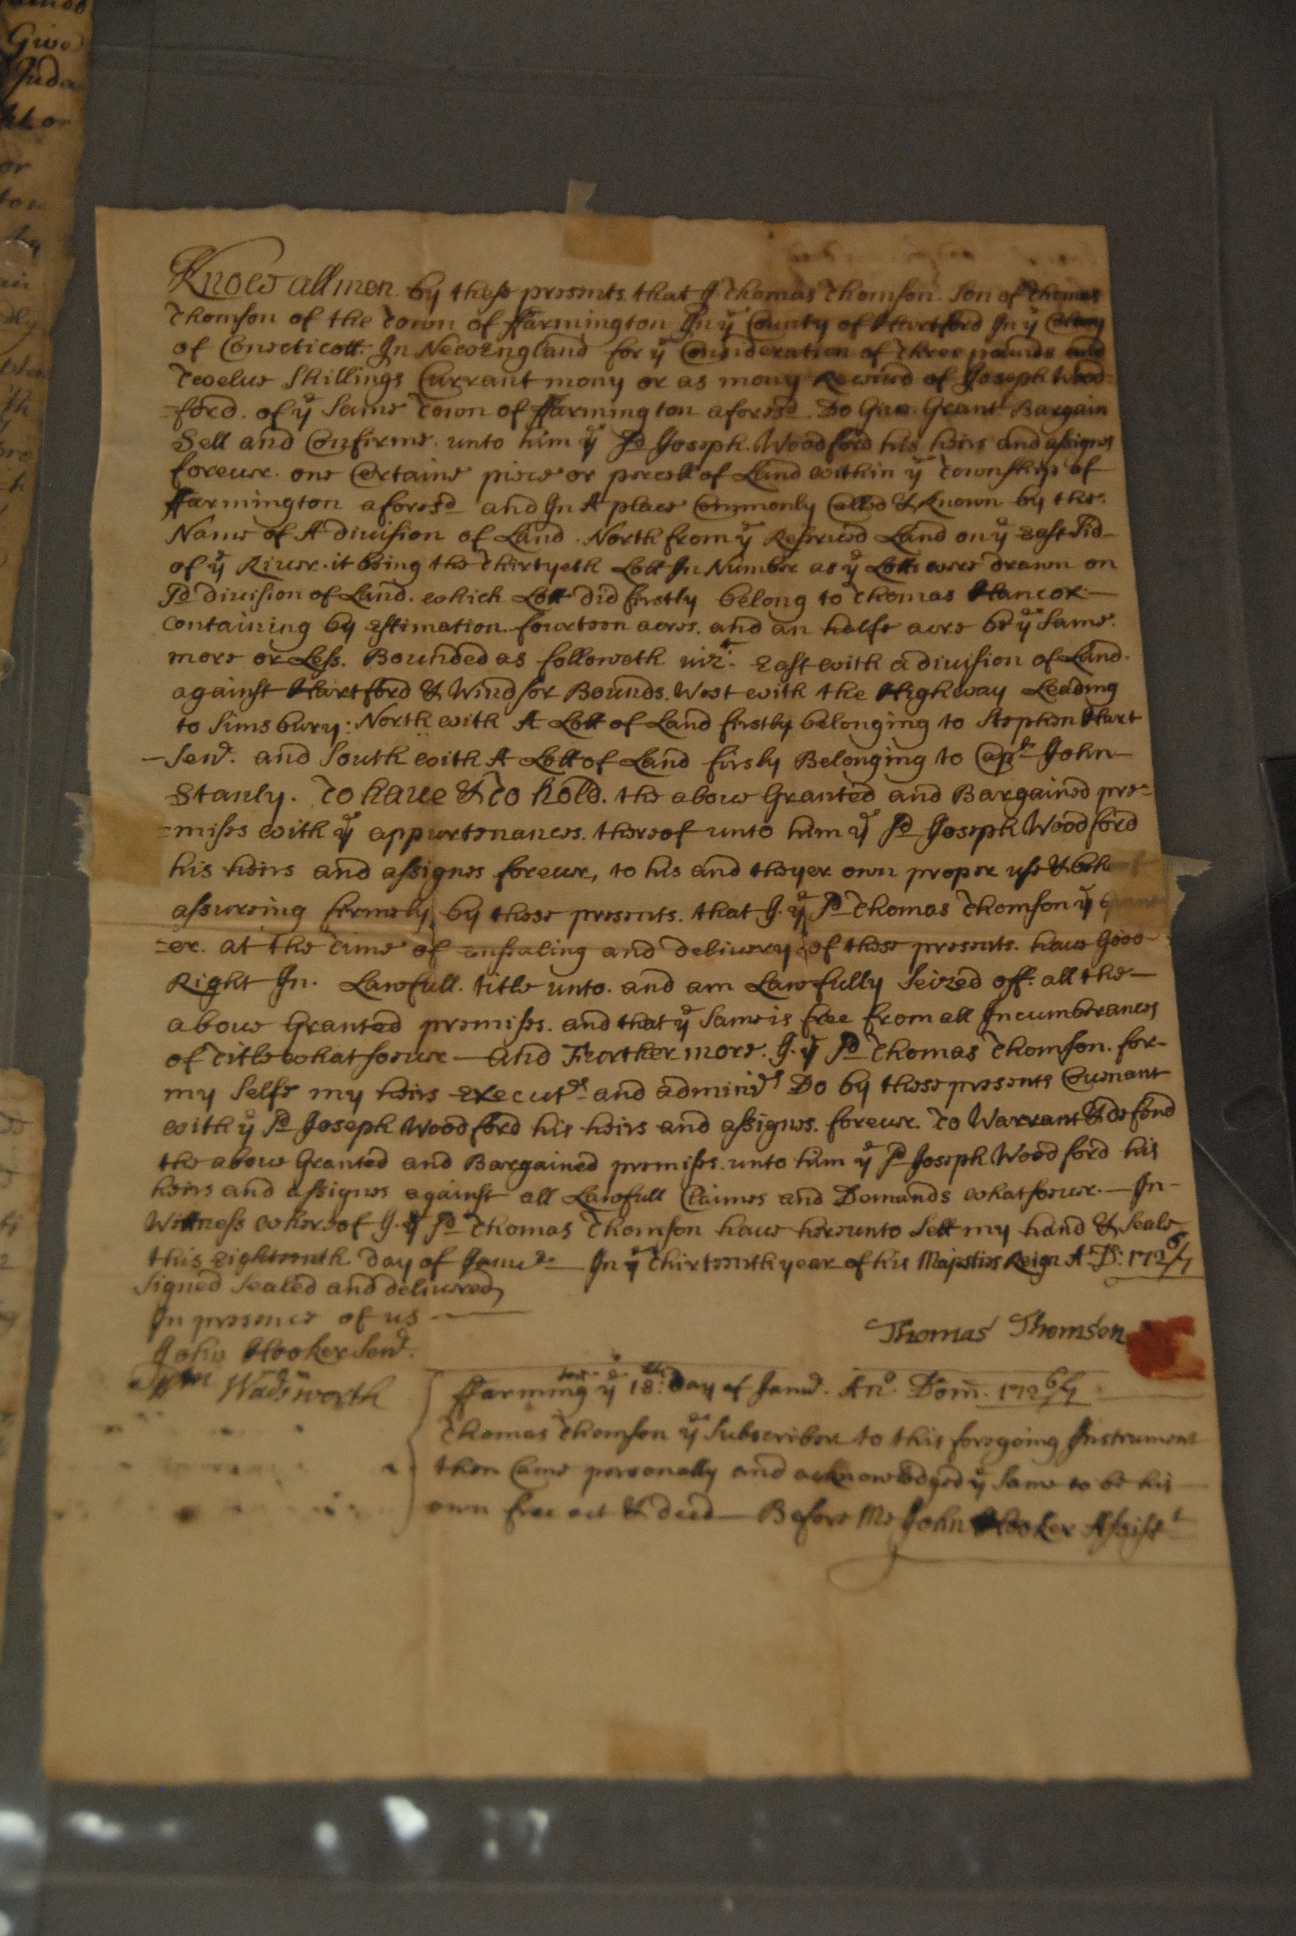 Know all men by these presents that I Thomas Thomson Son of Thomas
Thomson of the Town of Farmington In yᵉ County of Hartford In yᵉ Colony
of Conecticott In New England for yᵉ Consideration of three pounds and
Twelue Shillings Currant mony or as mony Receiud of Joseph Wood
=ford of yᵉ Same Town of Farmington aforesᵈ Do Giue Grant Bargain
Sell and Confirme unto him yᵉ Sᵈ Joseph Woodford his heirs and assignes
foreuer one Certaine piece or percell of Land within yᵉ Township of
Farmington aforesᵈ and In A place Commonly Called & Known by the
Name of A diuision of Land North from yᵉ Reserued Land on yᵉ East Sid
of yᵉ Riuer it being the Thirtyeth Lott In Number as yᵉ Lotts were drawn on
Sᵈ diuision of Land which Lott did firstly belong to Thomas Hancox
Containing by Estimation fourteen acres and an halfe acre be yᵉ Same
more or Less Bounded as followeth uizᵗ East with a diuision of Land
against Hartford & Windsor Bounds West with the Highway Leading
to Simsbury: North with A Lott of Land firstly belonging to Stephen Hart
Senʳ. and South with A Lott of Land firsly Belonging to Capᵗ John
Stanly. To haue & To hold. the aboue Granted and Bargained pre=
=mises with yᵉ appurtenances thereof unto him yᵉ Sᵈ Joseph Woodford
his heirs and assignes foreuer, to his and theyer own proper use &
assureing firmely by these presents that I yᵉ Sᵈ Thomas Thomson yᵉ
=er at the Time of ensealing and deliuery of these presents haue Good
Right In Lawfull title unto and am Lawfully Seized off all the
aboue Granted premises and that yᵉ Same is free from all Incumberances
of Title whatsoeuer — And Further more I yᵉ Sᵈ Thomas Thomson for
my Selfe my heirs Executʳˢ and adminiʳˢ Do by these presents Couenant
with yᵉ Sᵈ Joseph Woodford his heirs and assignes foreuer To Warrant & defend
the aboue Granted and Bargained premises unto him yᵉ Sᵈ Joseph Woodford his
heirs and assignes against all Lawfull Claimes and Demands whatsoeuer — In
Wittness whereof I yᵉ Sᵈ Thomas Thomson haue hereunto Sett my hand & Seale
this Eighteenth Day of Janu In yᵉ Thirteenth year of his Majesties Reign A: D: 1726/7
Signed Sealed and deliuered
In presence of us
John Hooker Senʳ.
Thomas Thomson
Wadsworth
Farmingtonᵗᵒⁿ yᵉ 18th Day of Janʳ. Anº. Dom. 1726/7
Thomas Thomson yᵉ Subscriber to this foregoing Instrument
then Came personally and acknowledged yᵉ Same to be his
own free act & deed — Before Me John Hooker Assistᵗ